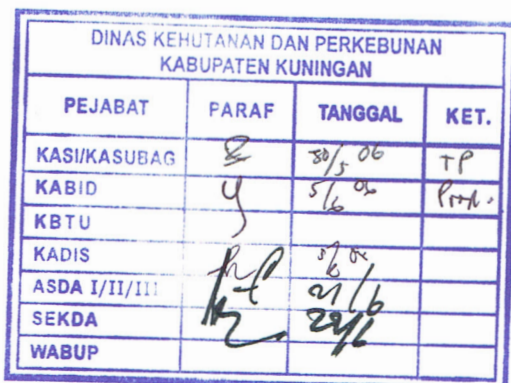 DINAS KEHUTANAN DAN PERKEBUNAN
KABUPATEN KUNINGAN
PEJABAT PARAF TANGGAL KET.
KASI/KASUBAG 30/5 06 TP
KABID 5/6 06
KBTU
KADIS 5/6 06
ASDA I/II/III 21/6
SEKDA 22/6
WABUP